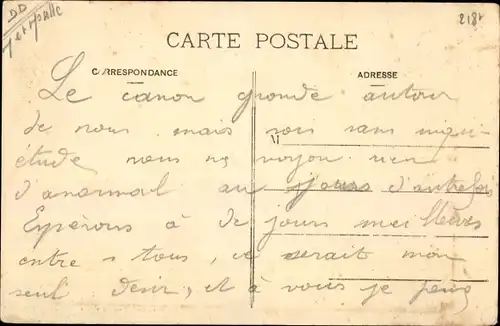 DD
M et Moselle
218
CARTE POSTALE
CORRESPONDANCE
ADRESSE
M
Le canon gronde autour
de nous mais sois sans inqui-
étude nous ne voyon rien
d'anormal au jours d'autrefois
Espérons à de jours meilleurs
entre tous, ce serait mon
seul désir, et à vous je pense